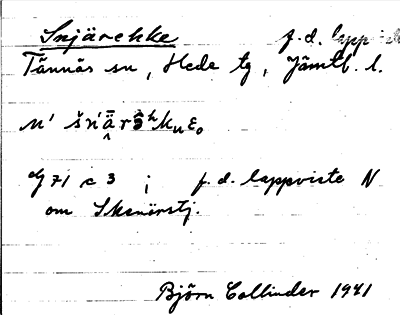 Snjärehke f.d. lapp
Tännäs sn, Hede tg, Jämtl. l.
71 c 3 ; f. d. lappviste N
om Skenörstj.
Björn Collinder 1941